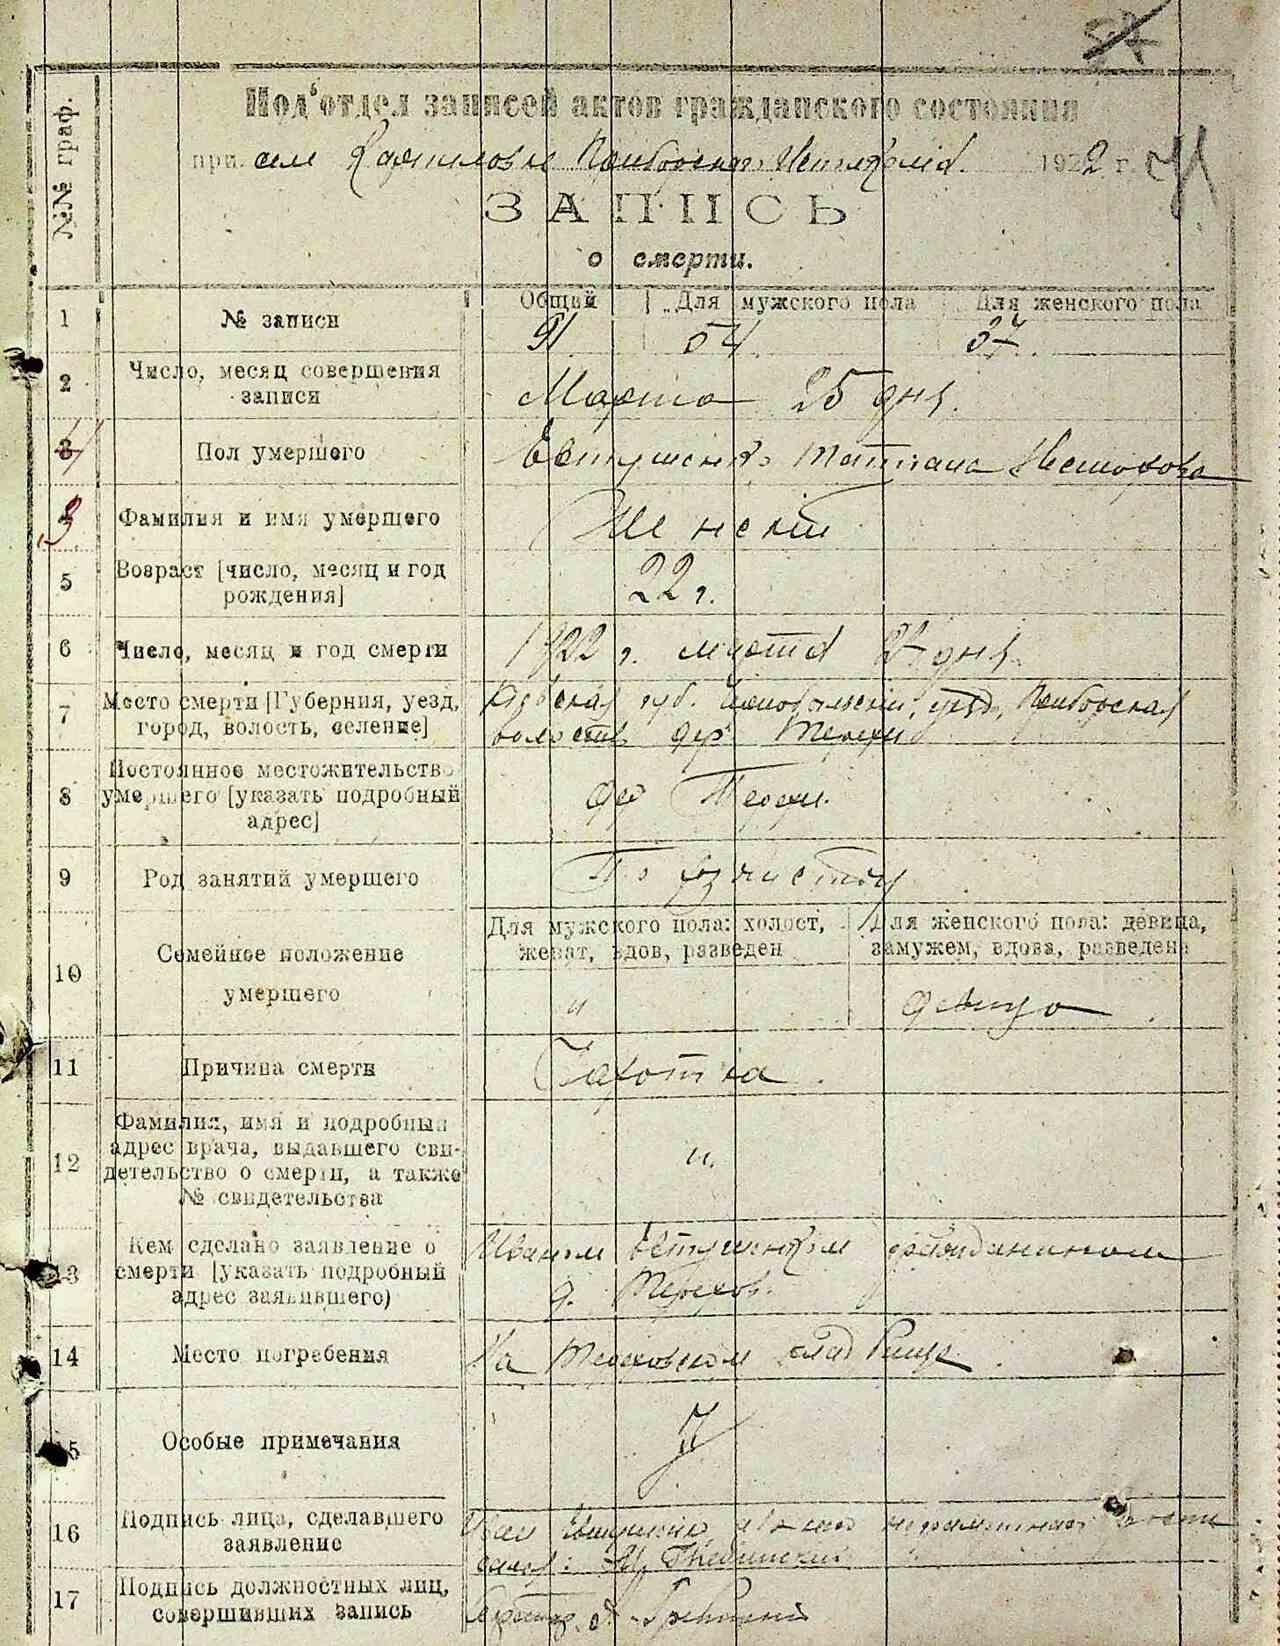 57
Под'отдел записей актов гражданского состояния
при селе 1922 г.
№№ граф.
ЗАПИСЬ
о смерти.
Общий Для мужского пола Для женского пола
1 № записи 91 54 37
2 Число, месяц совершения
записи
Марта 25 дня.
3 Пол умершего
Евтушенко Татиана Несторова
3 Фамилия и имя умершего
Женский
5 Возраст [число, месяц и год
рождения]
22 г.
6 Число, месяц и год смерти
1922 г. марта дня
7 Место смерти [Губерния, уезд,
город, волость, селение]
Киевская губ. Чернобыльский уезд,
волость дер Терехи
8 Постоянное местожительство
умершего [указать подробный
адрес]
дер Терехи.
9 Род занятий умершего
10 Семейное положение
умершего
Для мужского пола: холост,
женат, вдов, разведен
Для женского пола: девица,
замужем, вдова, разведена
"
девица
11 Причина смерти
Чахотка.
12 Фамилия, имя и подробный
адрес врача, выдавшего сви-
детельство о смерти, а также
№ свидетельства
".
13 Кем сделано заявление о
смерти [указать подробный
адрес заявившего)
Иваном Евтушенком гражданином
д. Терехов.
14 Место погребения
На Тереховском кладбище.
15 Особые примечания
16 Подпись лица, сделавшего
заявление
Иван
17 Подпись должностных лиц,
совершивших запись